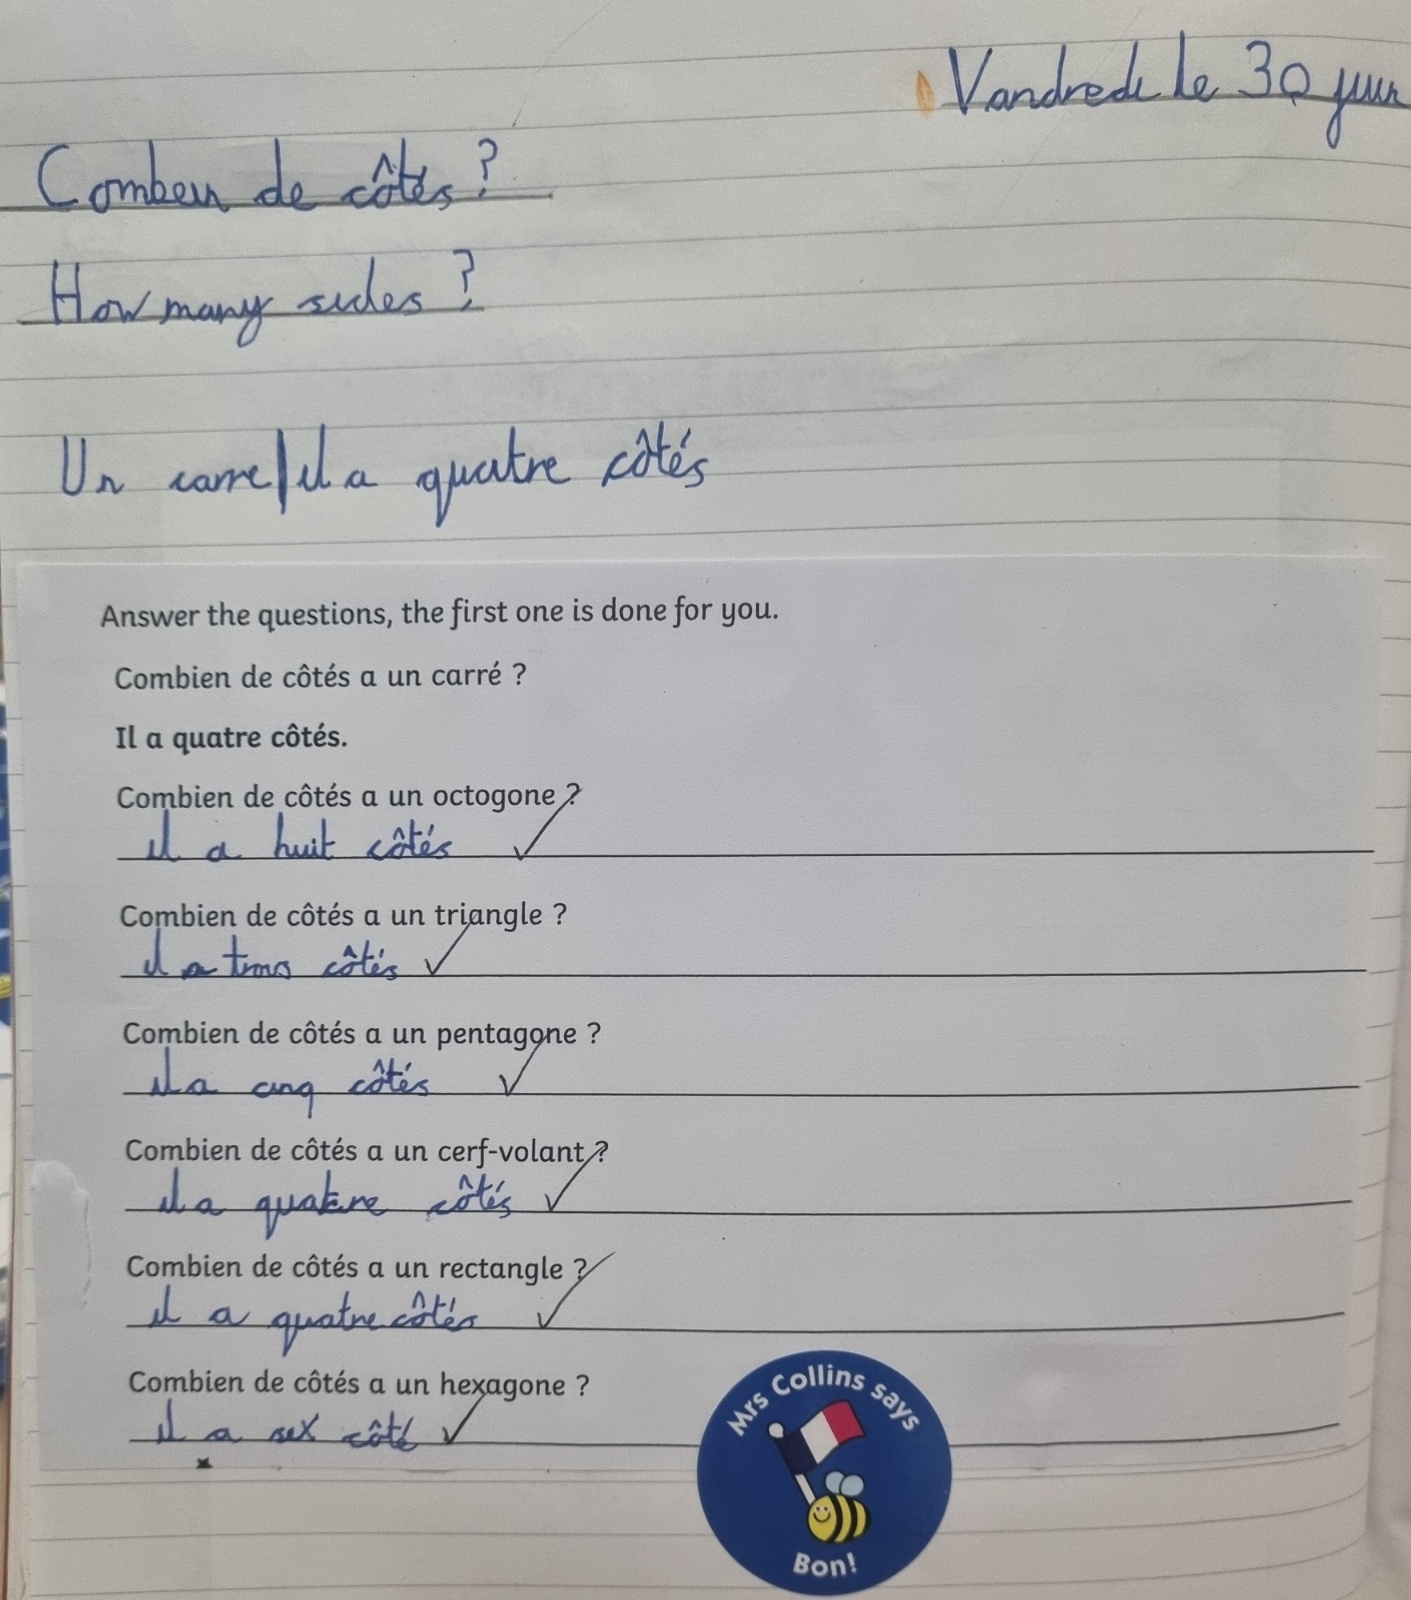 Vandredi le 30 juin
Combien de côtés?
How many sides?
Un carre/il a quatre côtés
Answer the questions, the first one is done for you.
Combien de côtés a un carré ?
Il a quatre côtés.
Combien de côtés a un octogone ?
il a huit côtés
Combien de côtés a un triangle ?
il a trois côtés
Combien de côtés a un pentagone ?
il a cinq côtés
Combien de côtés a un cerf-volant ?
il a quatre côtés
Combien de côtés a un rectangle ?
il a quatre côtés
Combien de côtés a un hexagone ?
il a six côté
Mrs Collins says
Bon!